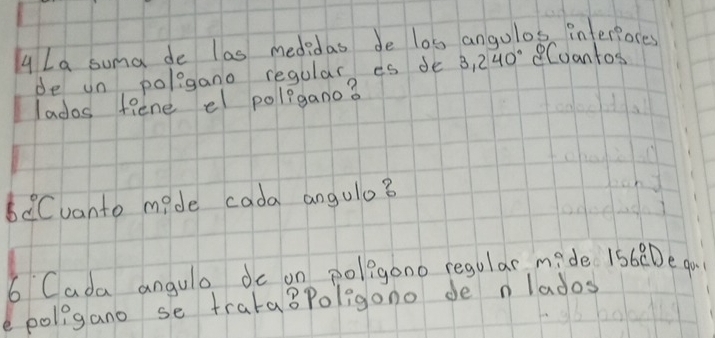 4 La suma de las medidas de los angulos interiores
de un poligano regular es de 3,240° ¿Cuantos
lados tiene el poligano?
5 ¿Cuanto mide cada angulo?
6 Cada angulo de un poligono regular mide 156 ¿De qu
e poligano se trata? Poligono de n lados